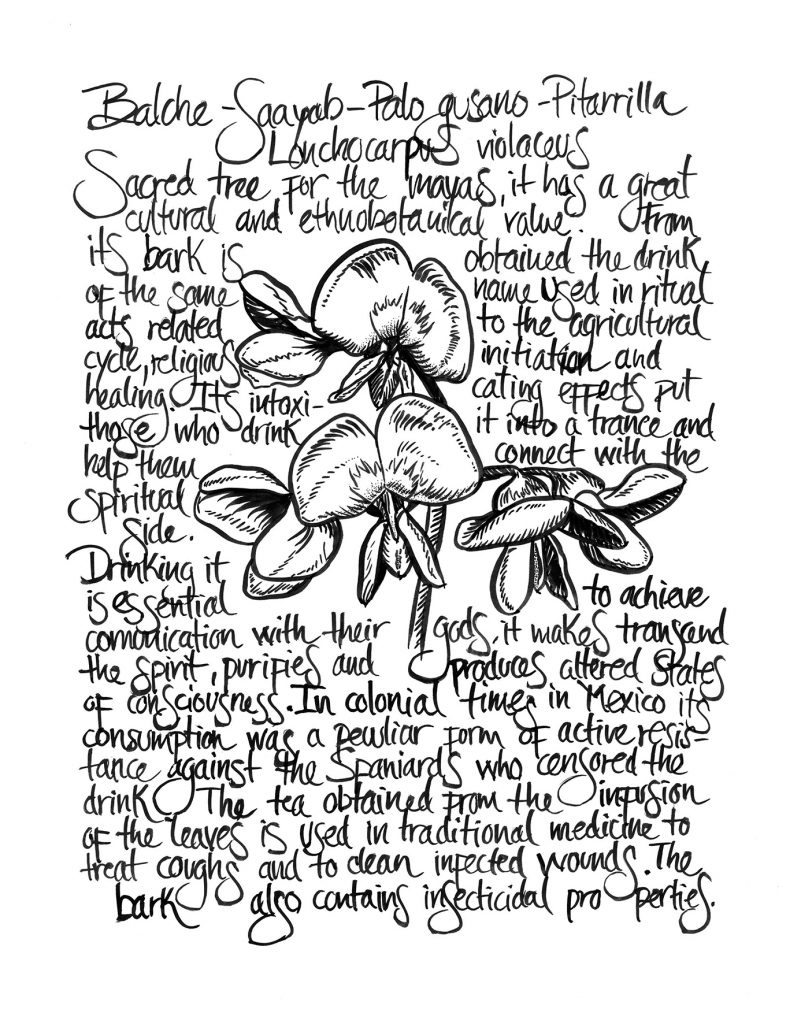 Balche - Saayab - Palo gusano - Pitarrilla
Lonchocarpus violaceus
Sacred tree for the mayas, it has a great
cultural and ethnobotanical value. From
its bark is obtained the drink
of the same name used in ritual
acts related to the agricultural
cycle, religias initiation and
healing. Its intoxi- cating effects put
those who drink it into a trance and
help them connect with the
spiritual
side.
Drinking it
is essential to achieve
comunication with their gods, it makes transcend
the spirit, purifies and produces altered states
of consciousness. In colonial times in Mexico its
consumption was a peculiar form of active resis-
tance against the Spaniards who censored the
drink. The tea obtained from the infusion
of the leaves is used in traditional medicine to
treat coughs and to clean infected wounds. The
bark also contains insecticidal properties.